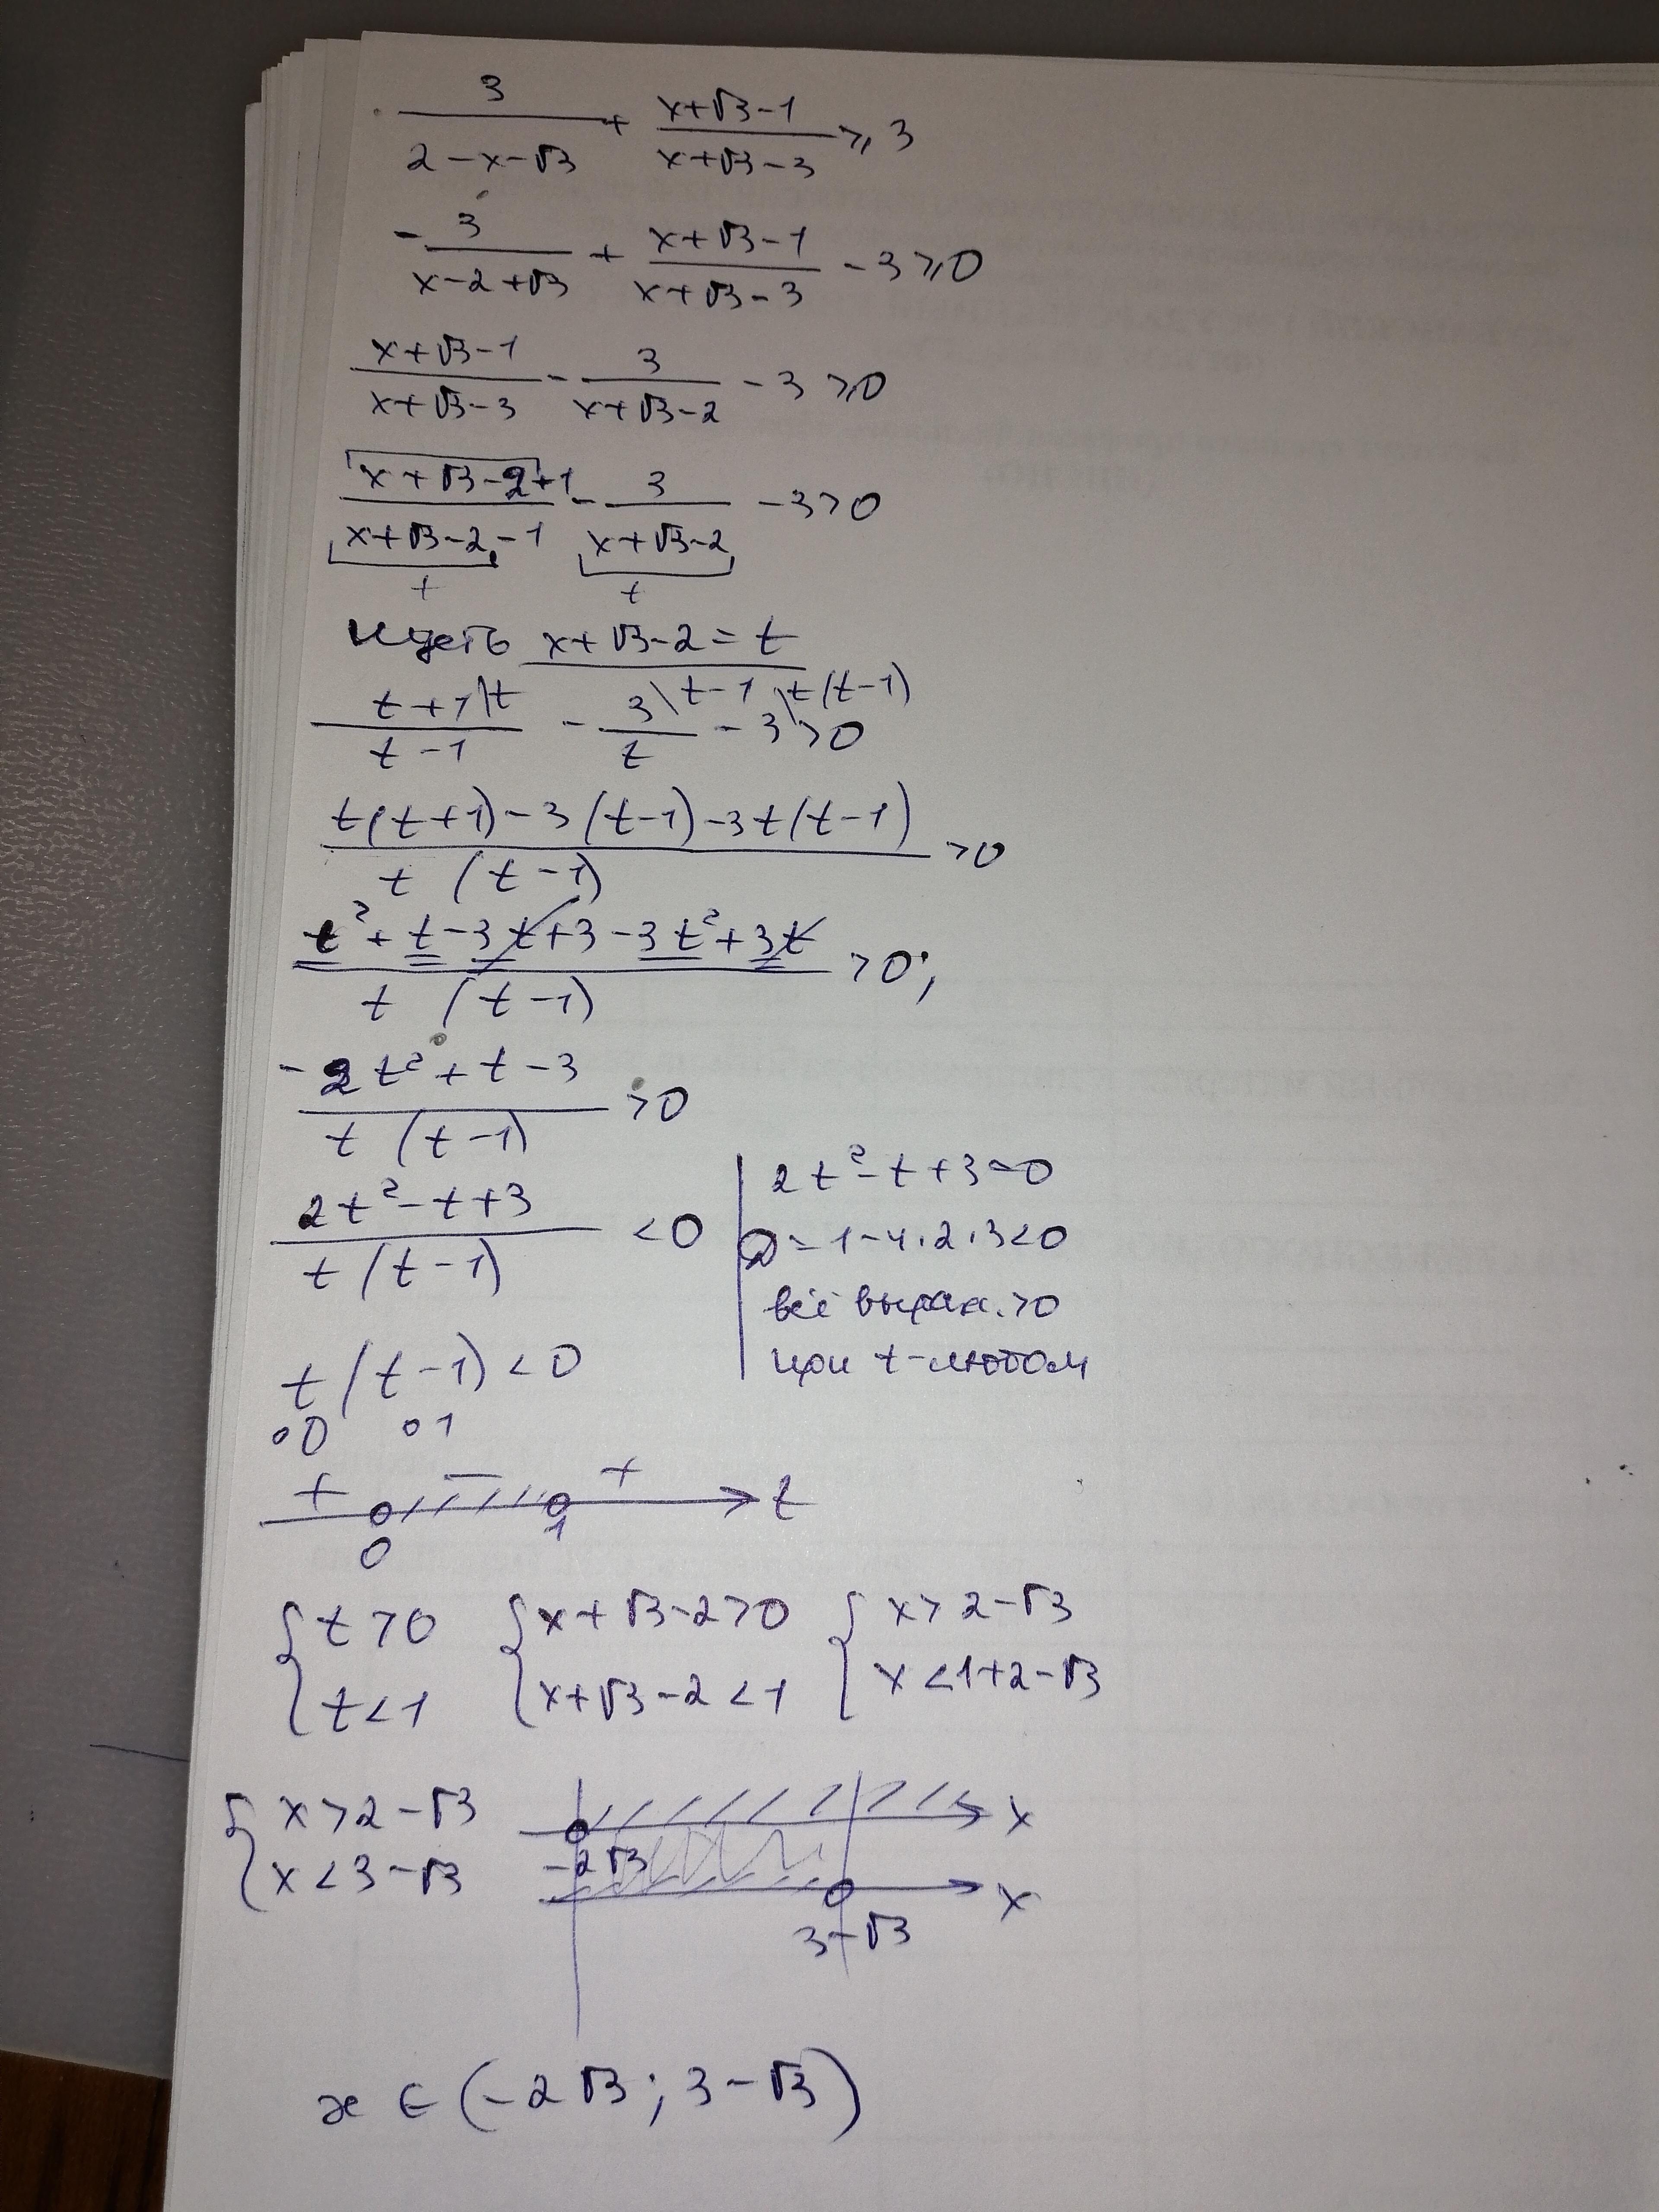 3/(2-x-√3) + (x+√3-1)/(x+√3-3) ⩾ 3
-3/(x-2+√3) + (x+√3-1)/(x+√3-3) - 3 ⩾ 0
(x+√3-1)/(x+√3-3) - 3/(x+√3-2) - 3 ⩾ 0
(x+√3-2+1)/(x+√3-2-1) - 3/(x+√3-2) - 3 > 0
t t
пусть x+√3-2 = t
(t+1\t)/(t-1) - (3\t-1)/t - 3\t(t-1) > 0
(t(t+1)-3(t-1)-3t(t-1))/(t(t-1)) > 0
(t²+t-3t+3-3t²+3t)/(t(t-1)) > 0;
(-2t²+t-3)/(t(t-1)) > 0
(2t²-t+3)/(t(t-1)) < 0
2t²-t+3=0
D=1-4·2·3<0
всё выраж. >0
при t-любом
t(t-1)<0
0 1
+ - + t
0 1
{t>0 {x+√3-2>0 {x>2-√3
{t<1 {x+√3-2<1 {x<1+2-√3
{x>2-√3 x
{x<3-√3 -2√3 x
3-√3
x ∈ (-2√3; 3-√3)